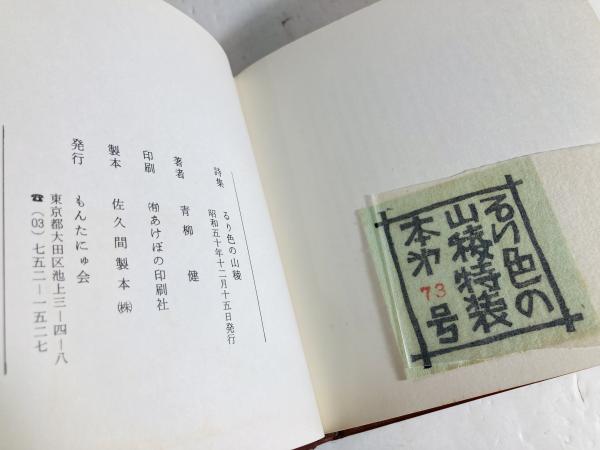 詩集　るり色の山稜
昭和五十年十二月十五日発行
著者　青柳　健
印刷　㈲あけぼの印刷社
製本　佐久間製本㈱
発行　もんたにゅ会
東京都大田区池上三－四－八
☎（03）七五二－一五二七
るり色の
山稜特装
本㐧73号